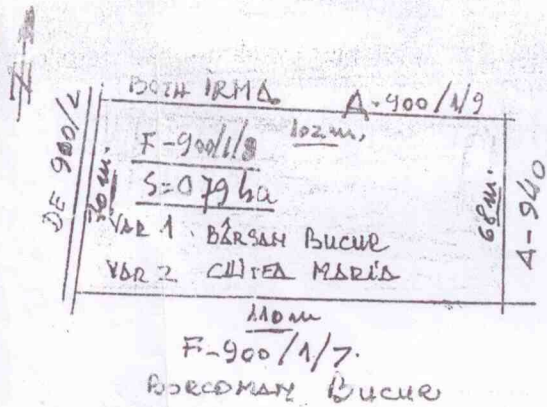 N
BOTH IRMA A-900/1/9
102m.
F-900/1/8
S=079 ha
VAR 1 BÂRSAN BUCUR
VAR 2 CUITEA MARIA
DE 900/2
70m.
68m.
A-940
110m
F-900/1/7.
BORCOMAN BUCUR